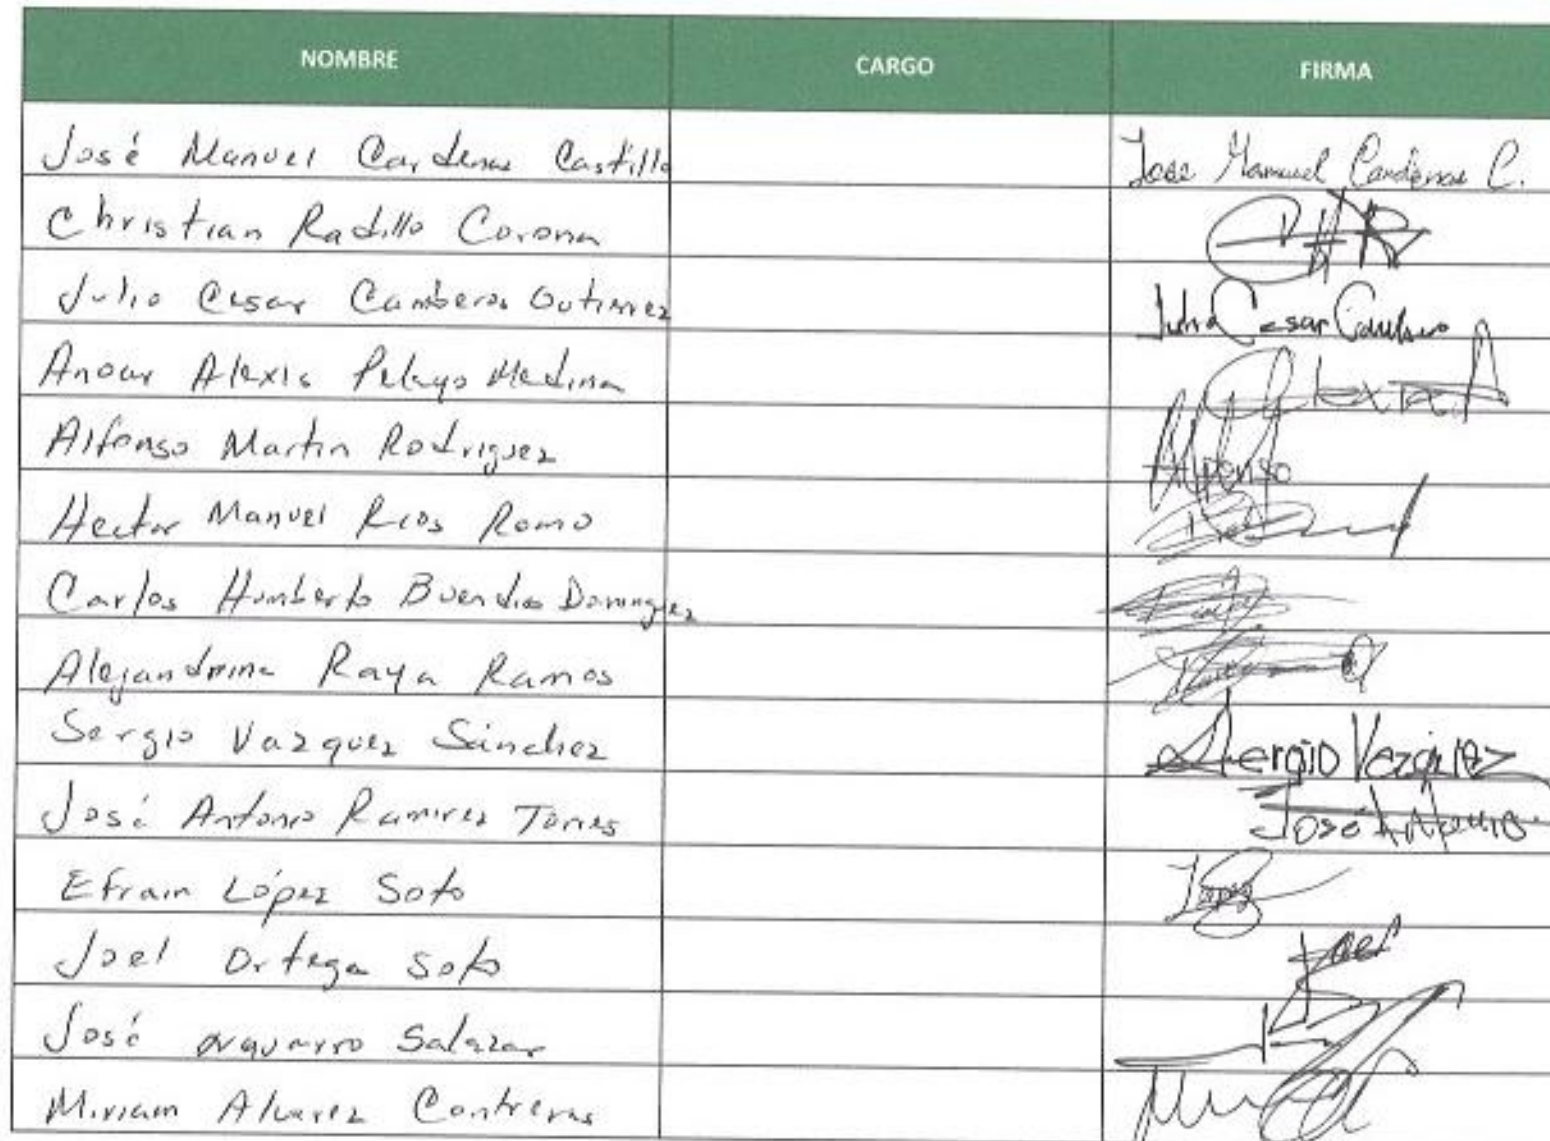 NOMBRE CARGO FIRMA
José Manuel Cardenas Castillo Jose Manuel Cardenas C.
Christian Radillo Corona
Julio Cesar Camberos Gutierrez Julio Cesar Camberos
Anour Alexis Pelayo Medina Alexis
Alfonso Martin Rodriguez Alfonso
Hector Manuel Rios Romo
Carlos Humberto Buendia Dominguez
Alejandrina Raya Ramos
Sergio Vazquez Sánchez Sergio Vazquez
José Antonio Ramirez Torres José Antonio
Efrain López Soto Lopez
Joel Ortega Soto Joel
José Salazar
Miriam Alvarez Contreras